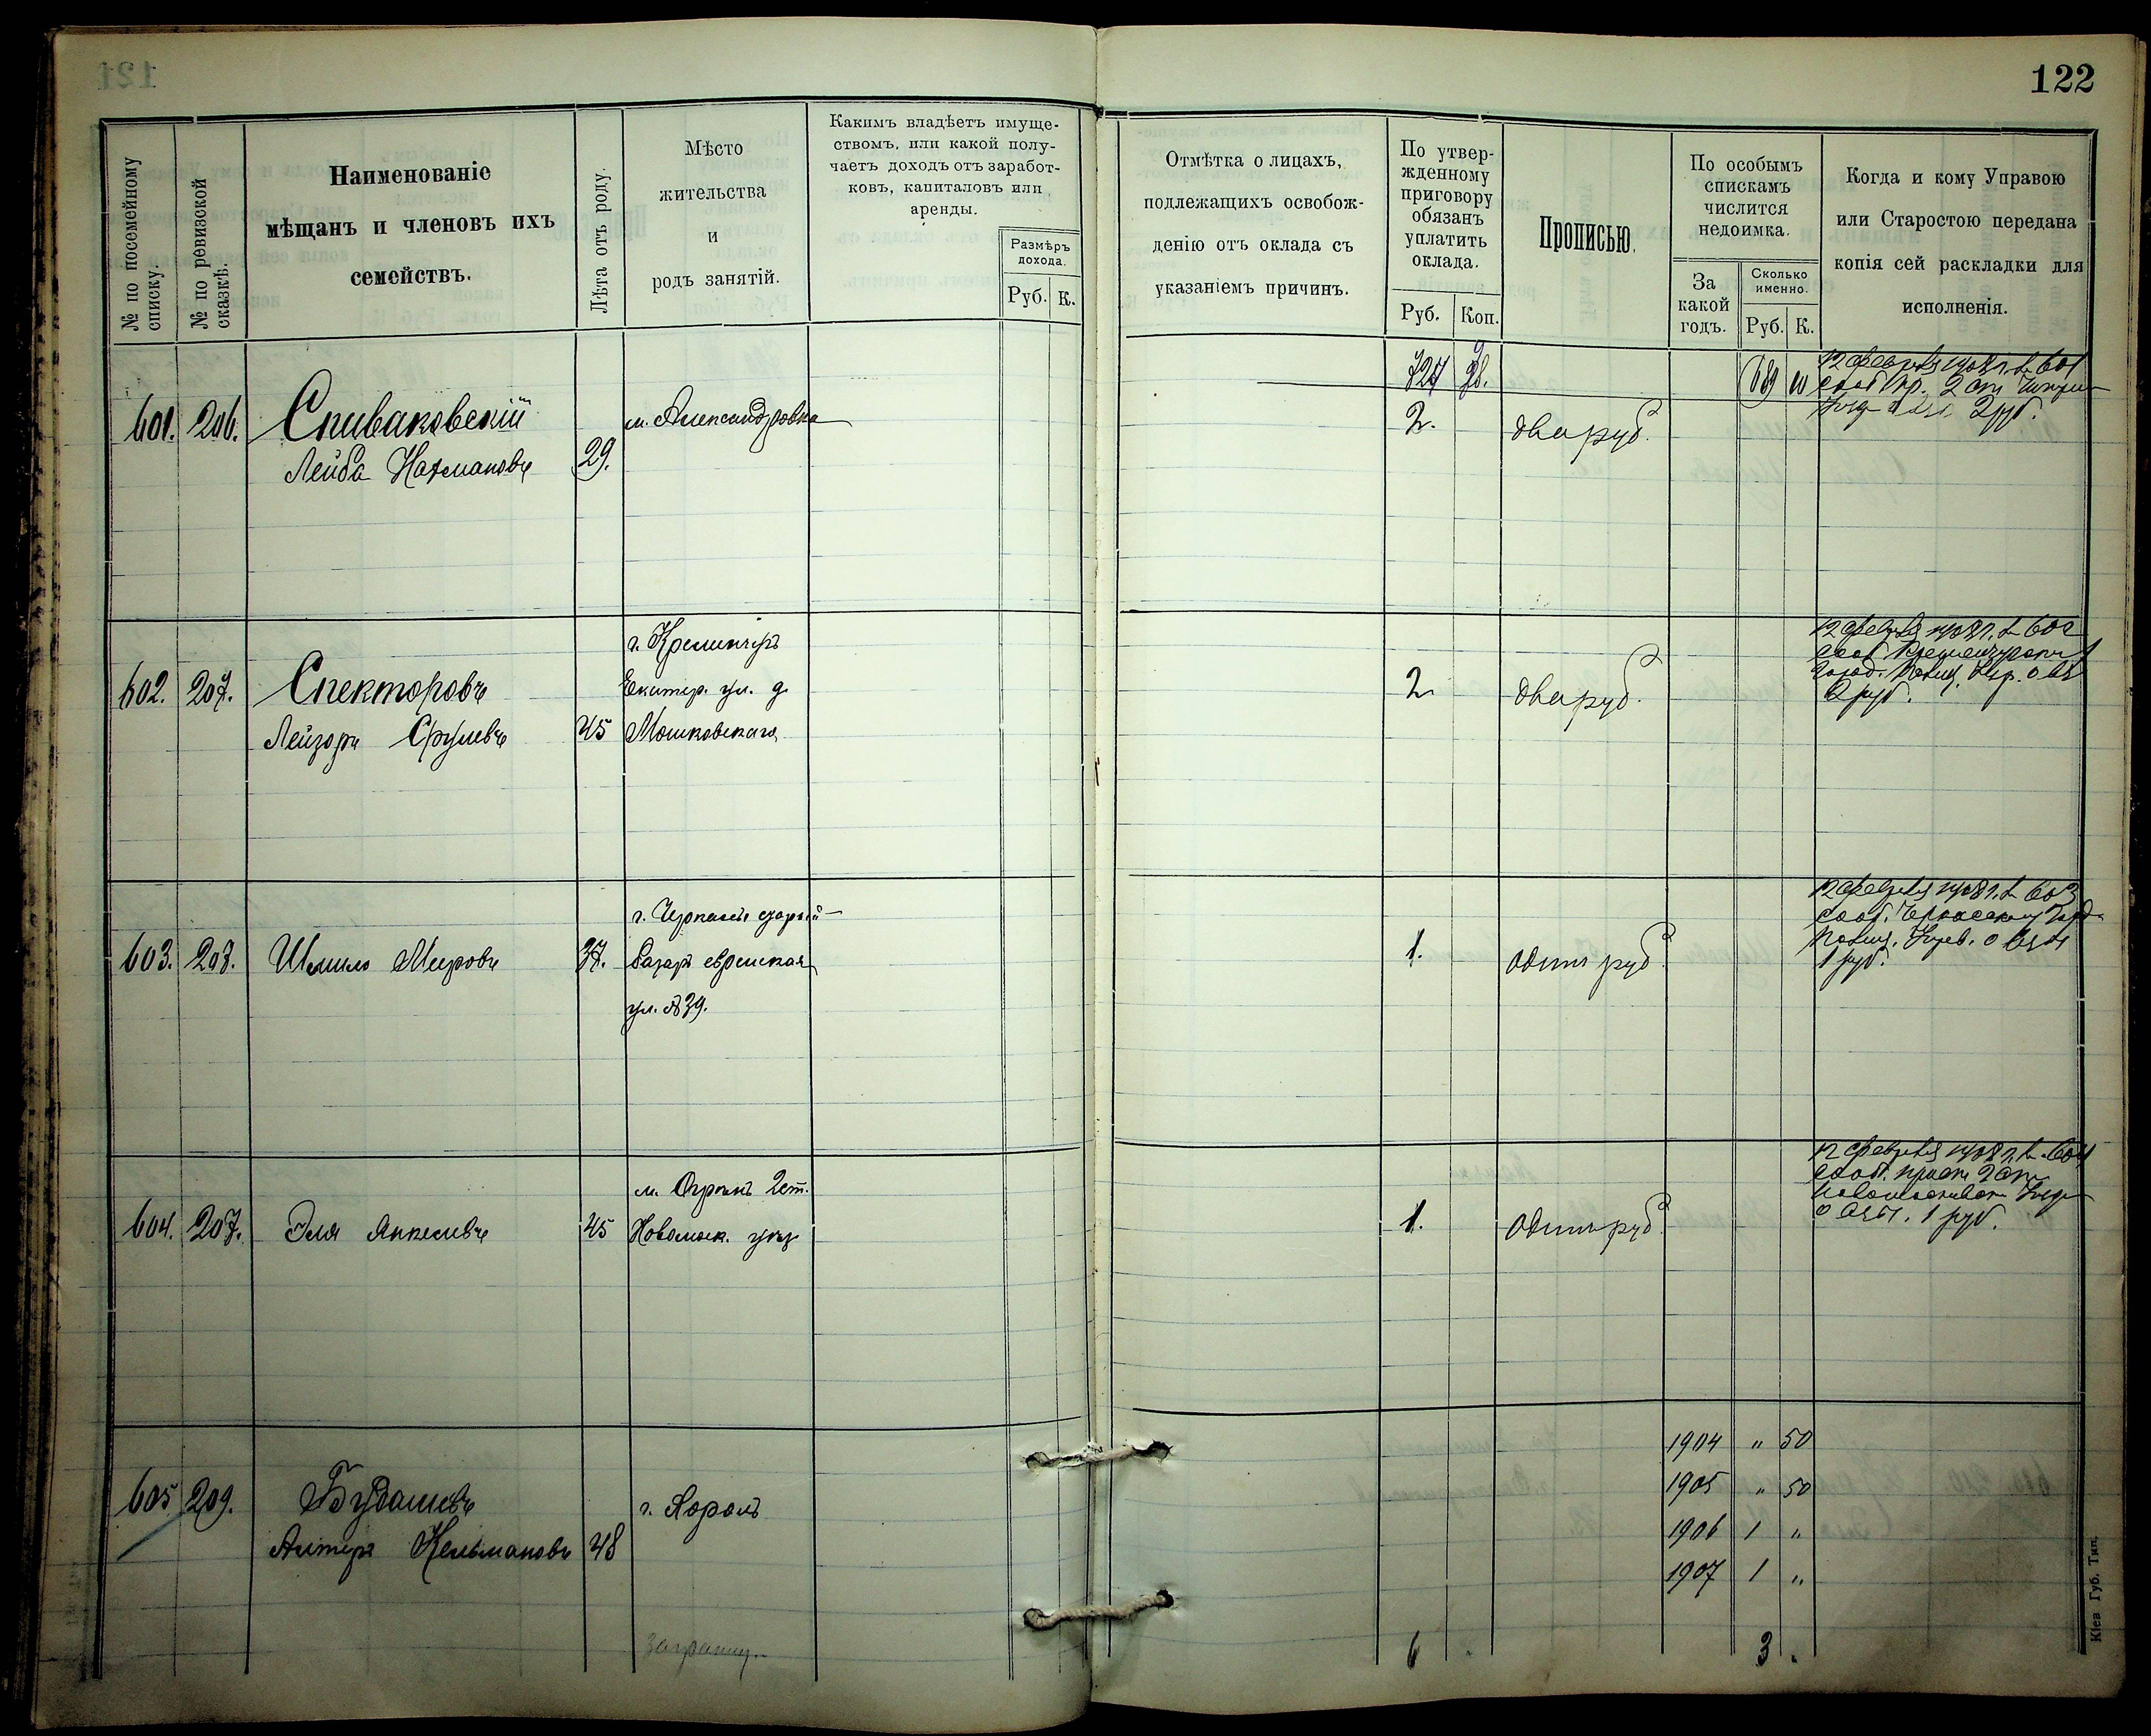 122
№ по посемейному списку.
№ по ревизской сказкѣ.
Наименованіе
мѣщанъ и членовъ ихъ
семействъ.
Лѣта отъ роду.
Мѣсто
жительства
и
родъ занятій.
Какимъ владѣетъ имуще-
ствомъ, или какой полу-
чаетъ доходъ отъ заработ-
ковъ, капиталовъ или
аренды.
Размѣръ
дохода.
Руб. К.
Отмѣтка о лицахъ,
подлежащихъ освобож-
денію отъ оклада съ
указаніемъ причинъ.
По утвер-
жденному
приговору
обязанъ
уплатить
оклада.
Руб. Коп.
Прописью.
По особымъ
спискамъ
числится
недоимка.
За
какой
годъ.
Сколько
именно.
Руб. К.
Когда и кому Управою
или Старостою передана
копія сей раскладки для
исполненія.
601. 206. Спиваковскій м. Александровка 2. два руб.
Лейба Нахмановъ 29.
12 февраля 1908 г. № 601
2 руб.
г. Кременчугъ
602. 207. Спекторовъ Екатер. ул. д. 2 два руб.
Лейзоръ Срулевъ 45 Мошковскаго
12 февраля 1908 г. № 602
сооб. Кременчугском
Город. Полиц. Упр. о вз
2 руб.
г. Черкасы старый
603. 208. Шмило Мееровъ 37. базаръ еврейская 1. одинъ руб.
ул. № 39.
12 февраля 1908 г. № 603
сооб. Черкасскому Город
Полиц. о взы
1 руб.
м. 2 ст.
604. 207. Эля Янкелевъ 45 Новомоск. уѣз. 1. одинъ руб.
12 февраля 1908 г. № 604
сооб. прист. 2 ст.
Новомосковск
о взы. 1 руб.
605 209. Будашевъ г. Хоролъ
Алтеръ Кельмановъ 48
1904 " 50
1905 " 50
1906 1 "
1907 1 "
6 3
Кіев Губ. Тип.